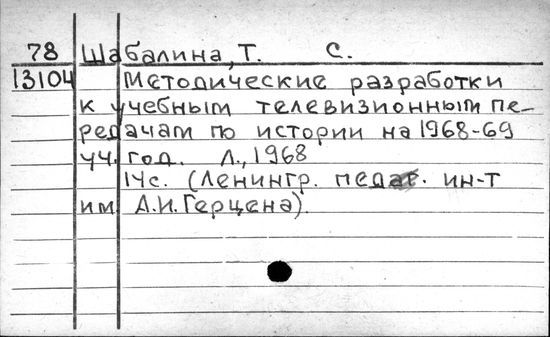 78 Шабалина, Т. С.
13104 Методические разработки
к учебным телевизионным пе-
редачам по истории на 1968-69
уч. год. Л., 1968
14с. (Ленингр. педаг. ин-т
им А.И. Герцена).